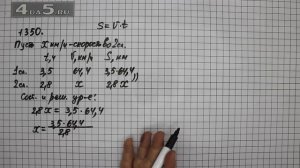 4DA5.RU
1350.
S = V · t
Пусть х км/ч - скорость во 2сл.
t, ч V, км/ч S, км
1сл. 3,5 64,4 3,5·64,4
2сл. 2,8 x 2,8x
Сост. и реш. ур-е:
2,8x = 3,5·64,4
x = 3,5·64,4 / 2,8